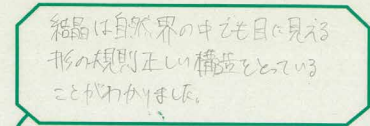 結晶は自然界の中でも目に見える
形の規則正しい構造をとっている
ことがわかりました。